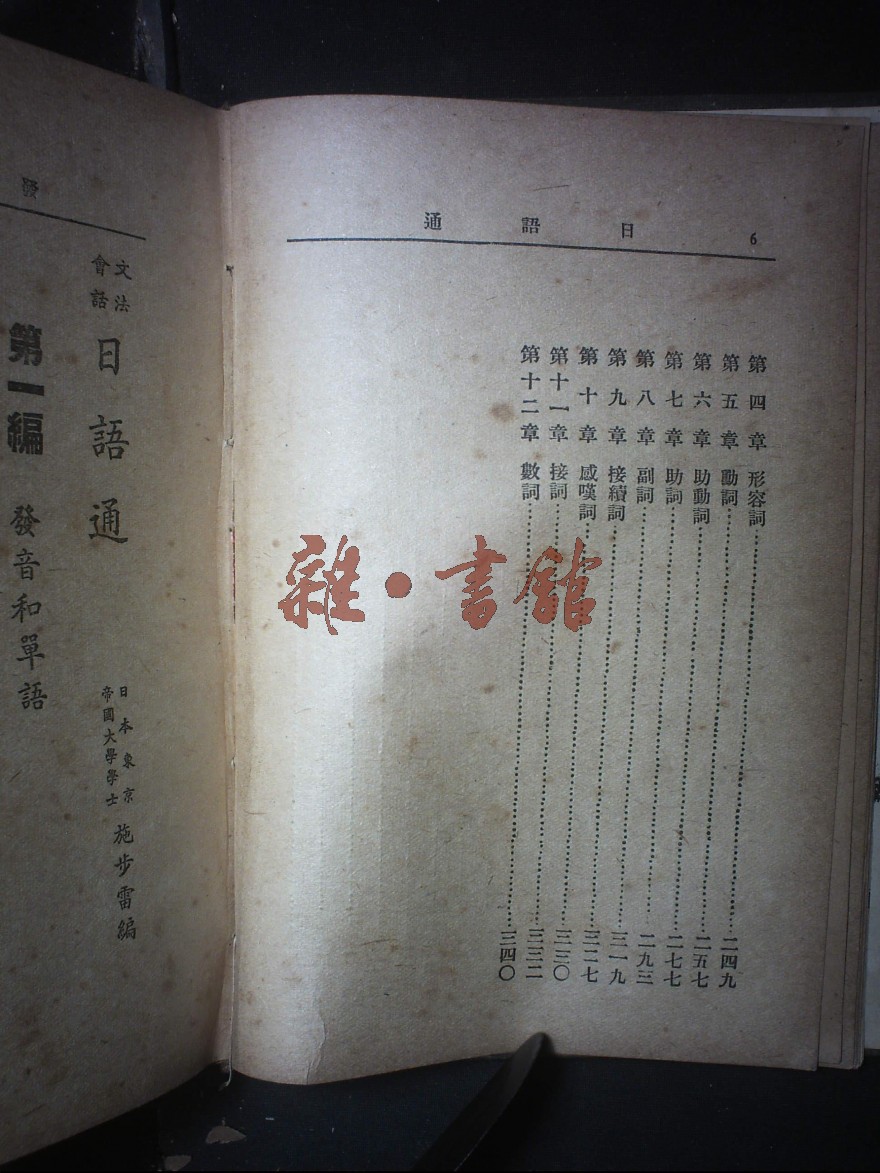 6 日語通
第四章 形容詞……二四九
第五章 動詞……二五七
第六章 助動詞……二七七
第七章 助詞……二九三
第八章 副詞……三一九
第九章 接續詞……三二七
第十章 感嘆詞……三三〇
第十一章 接詞……三三二
第十二章 數詞……三四〇
雜·書館
發
文法
會話
日語通
日本東京
帝國大學學士
施步雷編
第一編 發音和單語